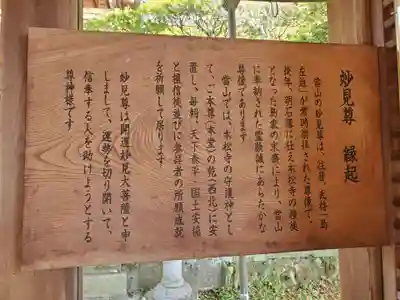 妙見尊 縁起
当山の妙見尊は、往昔、武将「島
左近」が常時崇拝された尊像で、
後年、明石藩に仕え本松寺の檀徒
となった島家の末裔により、当山
に奉納された霊験誠にあらたかな
尊像であります
当山では、本松寺の守護神とし
て、ご本尊(本堂)の乾(西北)に安
置し、毎朝、天下泰平・国土安穏
と檀信徒並びに参拝者の所願成就
を祈願して居ります
妙見尊は開運妙見大菩薩と申
しまして、運勢を切り開いて、
信奉する人を助けようとする
尊神様です